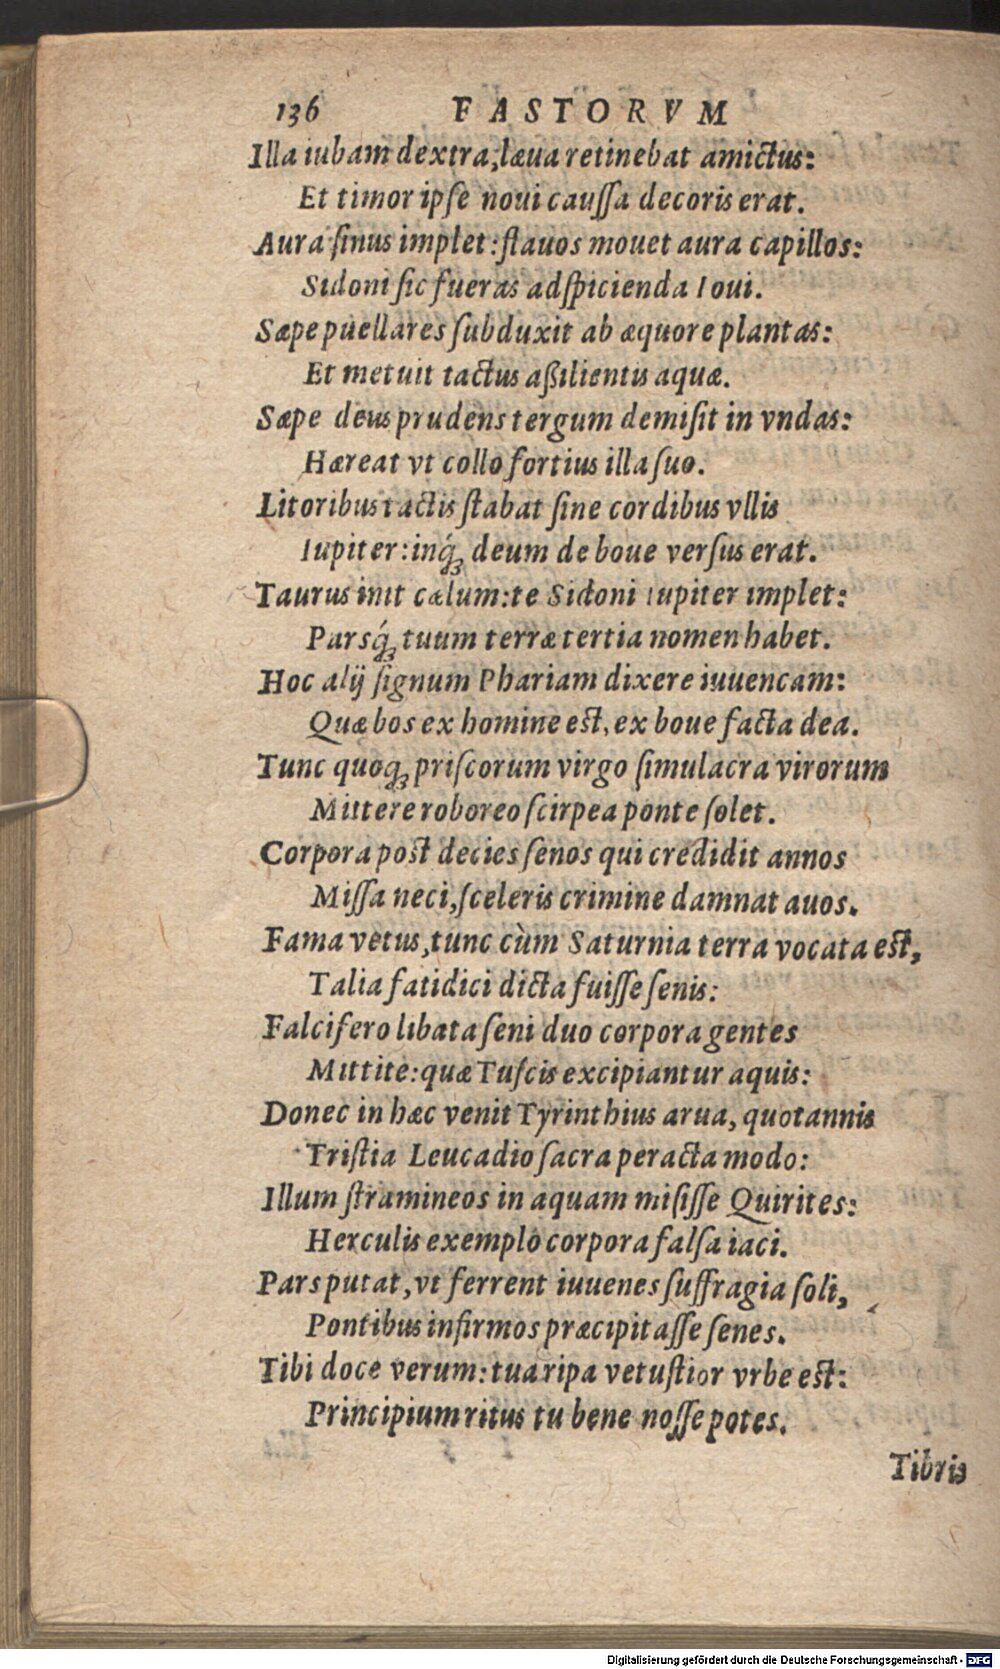 136 FASTORVM
Illa iubam dextra, læua retinebat amictus:
Et timor ipſe noui cauſſa decoris erat.
Aura ſinus implet: flauos mouet aura capillos:
Sidoni ſic fueras adſpicienda Ioui.
Sæpe puellares ſubduxit ab æquore plantas:
Et metuit tactus aßilientis aquæ.
Sæpe deus prudens tergum demiſit in vndas:
Hæreat vt collo fortius illa ſuo.
Litoribus tactis ſtabat ſine cordibus vllis
Iupiter: inq́ꝫ deum de boue verſus erat.
Taurus init cælum: te Sidoni Iupiter implet:
Parsq́ꝫ tuum terræ tertia nomen habet.
Hoc alij ſignum Phariam dixere iuuencam:
Quæ bos ex homine eſt, ex boue facta dea.
Tunc quoqꝫ priſcorum virgo ſimulacra virorum
Mittere roboreo ſcirpea ponte ſolet.
Corpora poſt decies ſenos qui credidit annos
Miſſa neci, ſceleris crimine damnat auos.
Fama vetus, tunc cùm Saturnia terra vocata eſt,
Talia fatidici dicta fuiſſe ſenis:
Falcifero libata ſeni duo corpora gentes
Mittite: quæ Tuſcis excipiantur aquis:
Donec in hæc venit Tyrinthius arua, quotannis
Triſtia Leucadio ſacra peracta modo:
Illum ſtramineos in aquam miſiſſe Quirites:
Herculis exemplo corpora falſa iaci.
Pars putat, vt ferrent iuuenes ſuffragia ſoli,
Pontibus infirmos præcipitaſſe ſenes.
Tibi doce verum: tua ripa vetuſtior vrbe eſt:
Principium ritus tu bene noſſe potes.
Tibris
Digitalisierung gefördert durch die Deutsche Forschungsgemeinschaft - DFG